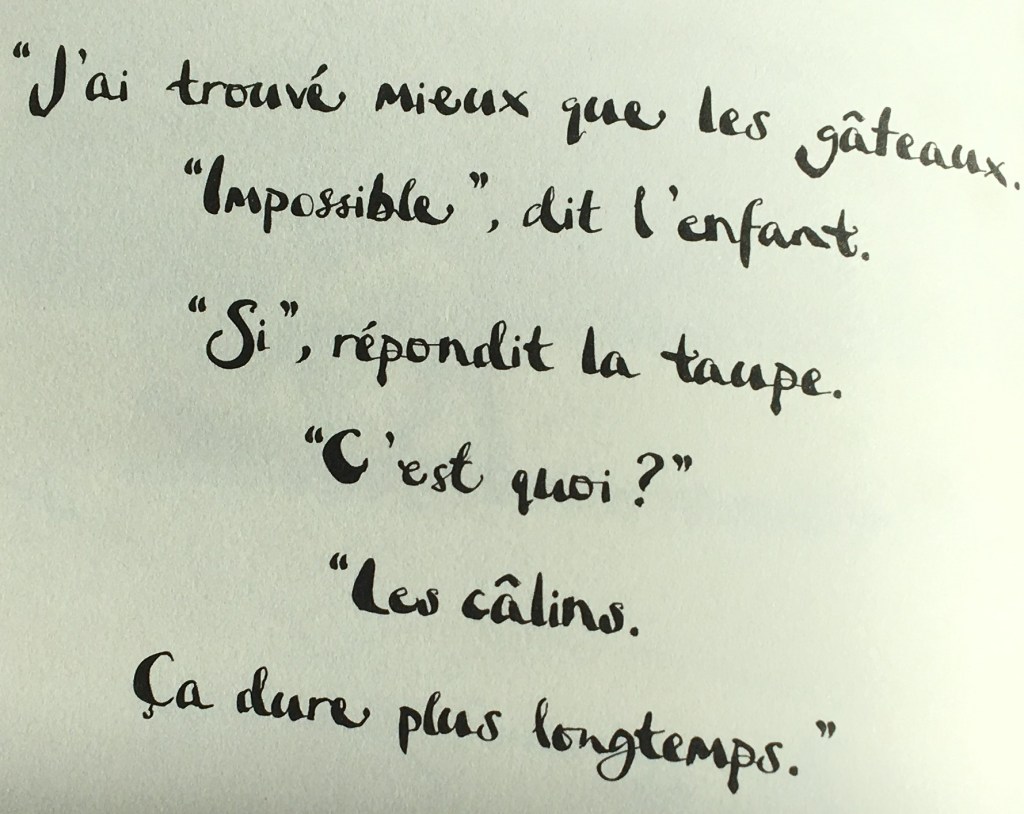 “J'ai trouvé mieux que les gâteaux.
“Impossible”, dit l'enfant.
“Si”, répondit la taupe.
“C'est quoi ?”
“Les câlins.
Ça dure plus longtemps.”